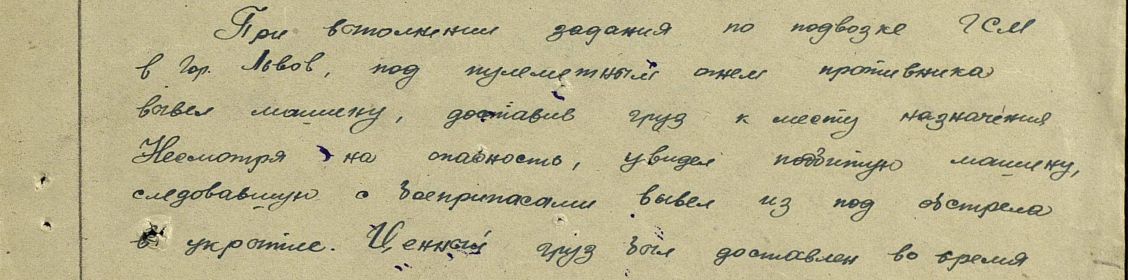 При выполнении задания по подвозке ГСМ
в гор. Львов, под пулеметным огнем противника
вывел машину, доставив груз к месту назначения
Несмотря на опасность, увидел подбитую машину,
следовавшую с боеприпасами вывел из под обстрела
в укрытие. Ценный груз был доставлен во время